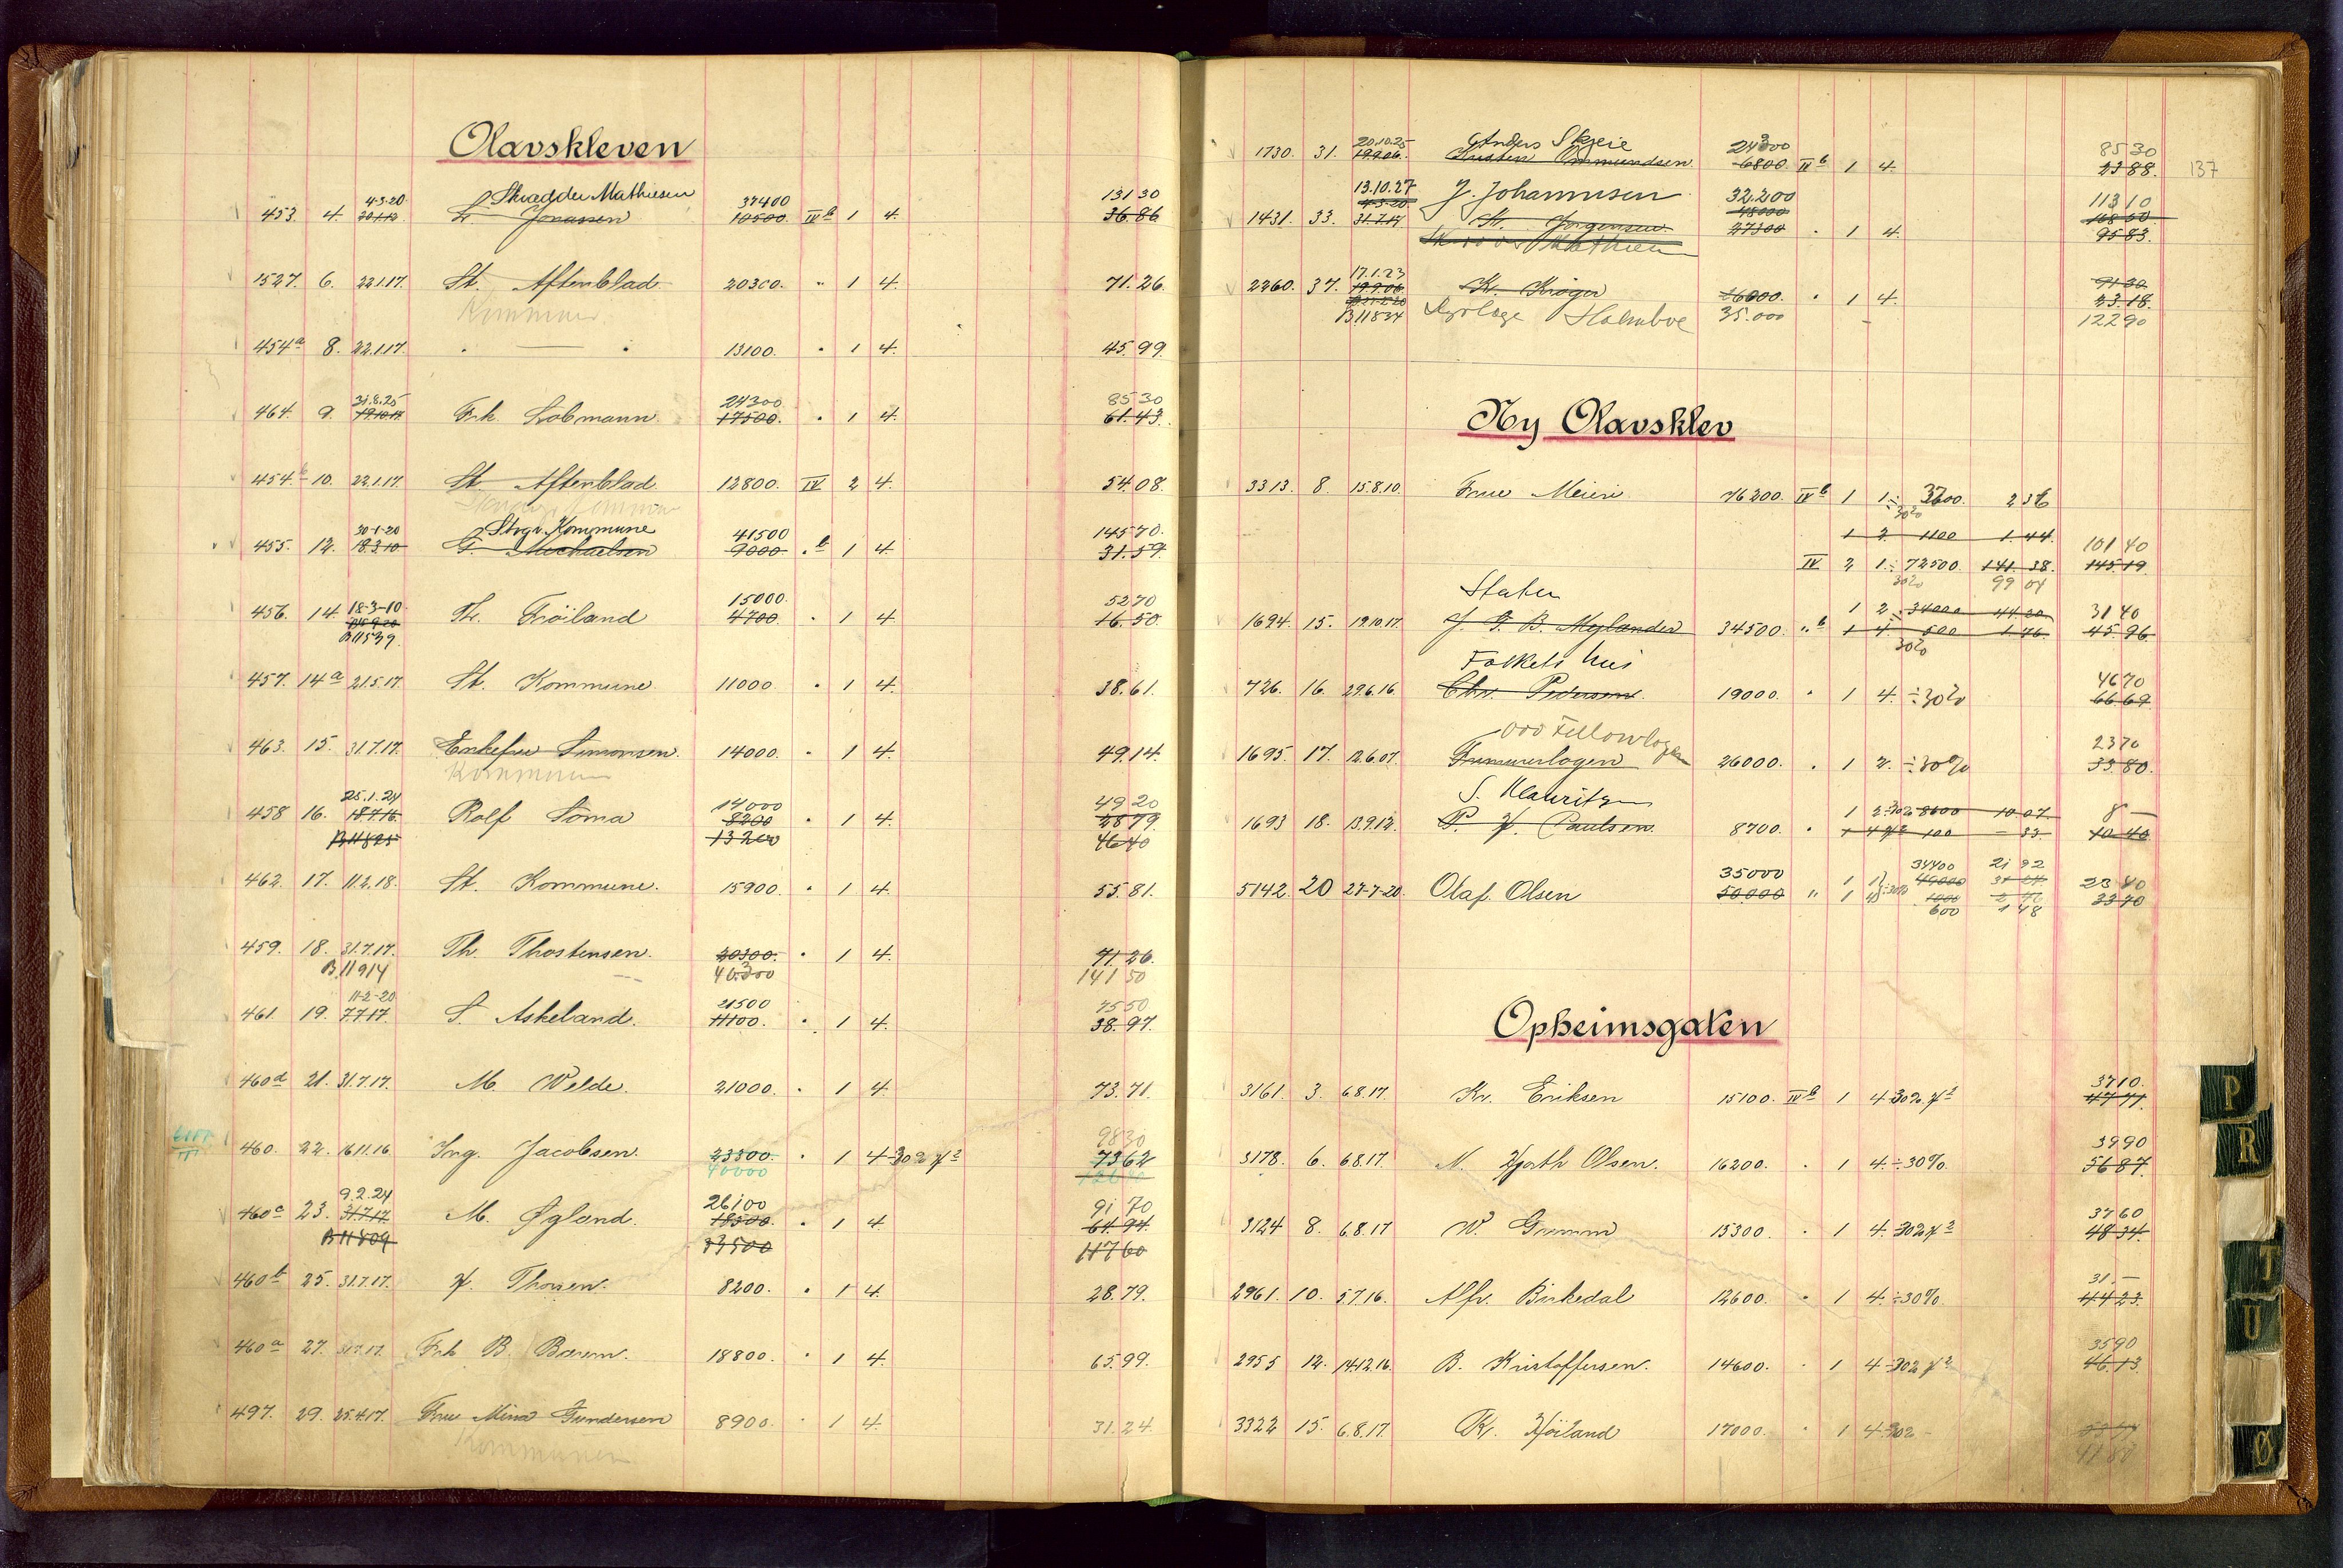 Olavskleven
4-3-20. Skrædder Mathiesen 37400 131 30
453. 4. 20.1.12 L. Jonassen 10500. IV b 1 4. 36.86
1527. 6. 22.1.17. St. Aftenblad 20300. " 1 4. 71.26.
Kommune
454a 8. 22.1.17. " — " 13100. " 1 4. 45.99.
31.8.25 24300 85 30
464. 9. 19.10.17 Frk. Løbmann. 17500. " 1 4. 61.43.
454b 10. 22.1.17. St. Aftenblad 12800. IV 2 4. 54.08.
30-1-20 Stvgr. Kommune 41500 145 70.
455. 12. 18.3.10 G. Michaelsen 9000. " b 1 4. 31.59.
18-3-10. 15000. 52 70
456. 14 Th. Fröiland 4700. " 1 4. 16.50
B11539.
457. 14a 21.5.17. St. Kommune 11000. " 1 4. 38.61.
463. 15. 31.7.17. Enkefru Simonsen. 14000. " 1 4. 49.14.
Kommunen
25.1.24 14000 49 20
458 16. 18.7.16. Rolf Soma 8200 " 1 4. 28 79.
B11825 13200 46 40
462. 17. 11.2.18. St. Kommune. 15900. " 1 4. 55.81.
459. 18. 31.7.17. Th. Thostensen. 20300. " 1 4. 71.26.
B.11914 40300 141 50
11-2-20 21500 75 50
461. 19. 7.7.17. S. Askeland. 11100. " 1 4. 38.97.
460d 21. 31.7.17. M. Welde. 21000. " 1 4. 73.71.
460. 22. 16.11.16 Ing. Jacobsen. 23300. " 1 4-30% 98 30
40000 73 62
9.2.24 26100 91 70
460c 23. 31.7.17. M. Øgland. 18500. " 1 4. 64.94.
B11809 33500 117 60
460b 25. 31.7.17. H. Thorsen. 8200. " 1 4. 28.79.
460a 27. 31.7.17. Frk B. Bærem. 18800. " 1 4. 65.99.
497. 29. 25.4.17. Frue Mina Gundersen 8900. " 1 4. 31.24.
Kommunen
137
20.10.25 Anders Skeie 24300 85 30
1730. 31. 19.9.06. Ommundsen. 6800. IV b 1 4. 23 88.
13.10.27 J. Johannesen 32.200 113 10
4-3-20 48000 168 50
1431. 33. 31.7.17 St. Jørgensen. 27300 " 1 4. 95 83.
Skrædder Mathiesen
17.1.23 91 30
2260. 37. 19.9.06. Kr. Krøger 26000. " 1 4. 23.18.
B11834 Holmboe 35.000 122 90
Ny Olavsklev
3313. 8. 15.8.10. Frue Meieri. 76200. IV b 1 1 ÷ 3700. 2 36
30%
1 2. 1100 1.44. 101 40
IV 2 1 ÷ 72500. 141.38. 145 19.
30% 99 04
Staten 1 2. 34000 44.20 31 40
1694. 15. 19.10.17. J. G. B. Mylander 34500. " b 1 4. 500 1.46. 45.96
30%
Folkets hus 46 70
726. 16. 29.6.16. Chr. Pedersen. 19000. " 1 4. ÷30% 66.69.
Odd Fellowlogen 23 70
1695. 17. 12.6.07. Frimurerlogen 26000. " 1 2. ÷30% 33 80.
S. Mauritzen 1 2 ÷30% 8600 10 07. 8 —
1693 18. 13.9.12. P. H. Paulsen. 8700. " 1 4 100 — 33. 10 40
35000 34400 21 92
5142. 20 27-7-20. Olaf. Olsen 50.000 " 1 49000 23 40
1 4 1000 33 70
600 1 48
Opheimsgaten
37 10.
3161. 3. 6.8.17. Kr. Eriksen 15100. IV b 1 4-30% 47 71.
39 90
3178. 6. 6.8.17. N. Hjorth Olsen. 16200. " 1 4. ÷30%. 56 87
37 60
3124 8. 6.8.17 W. Grimm 15300. " 1 4. 30% 48 34.
31. —
2961. 10. 5.7.16. Alfr. Birkedal 12600. " 1 4. ÷30%. 44 23.
35 90
2955 12. 14.12.16. B. Kristoffersen. 14600. " 1 4-30% 46.13.
3322 15. 6.8.17. Kr. Höiland 17000. " 1 4-30%
41 80
P
R
T
U
Ø